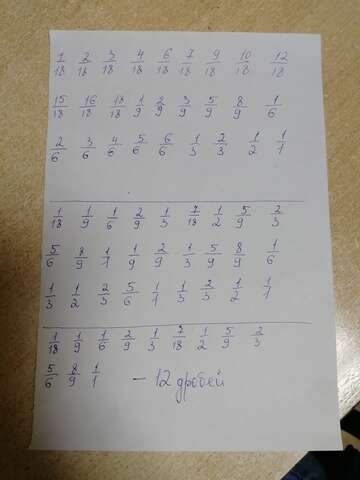 1/18 2/18 3/18 4/18 6/18 7/18 9/18 10/18 12/18
15/18 16/18 18/18 1/9 2/9 3/9 5/9 8/9 1/6
2/6 3/6 4/6 5/6 6/6 1/3 2/3 1/2 1/1
1/18 1/9 1/6 2/9 1/3 7/18 1/2 5/9 2/3
5/6 8/9 1/1 1/9 2/9 1/3 5/9 8/9 1/6
1/3 1/2 2/3 5/6 1/1 1/3 2/3 1/2 1/1
1/18 1/9 1/6 2/9 1/3 7/18 1/2 5/9 2/3
5/6 8/9 1/1 – 12 дробей